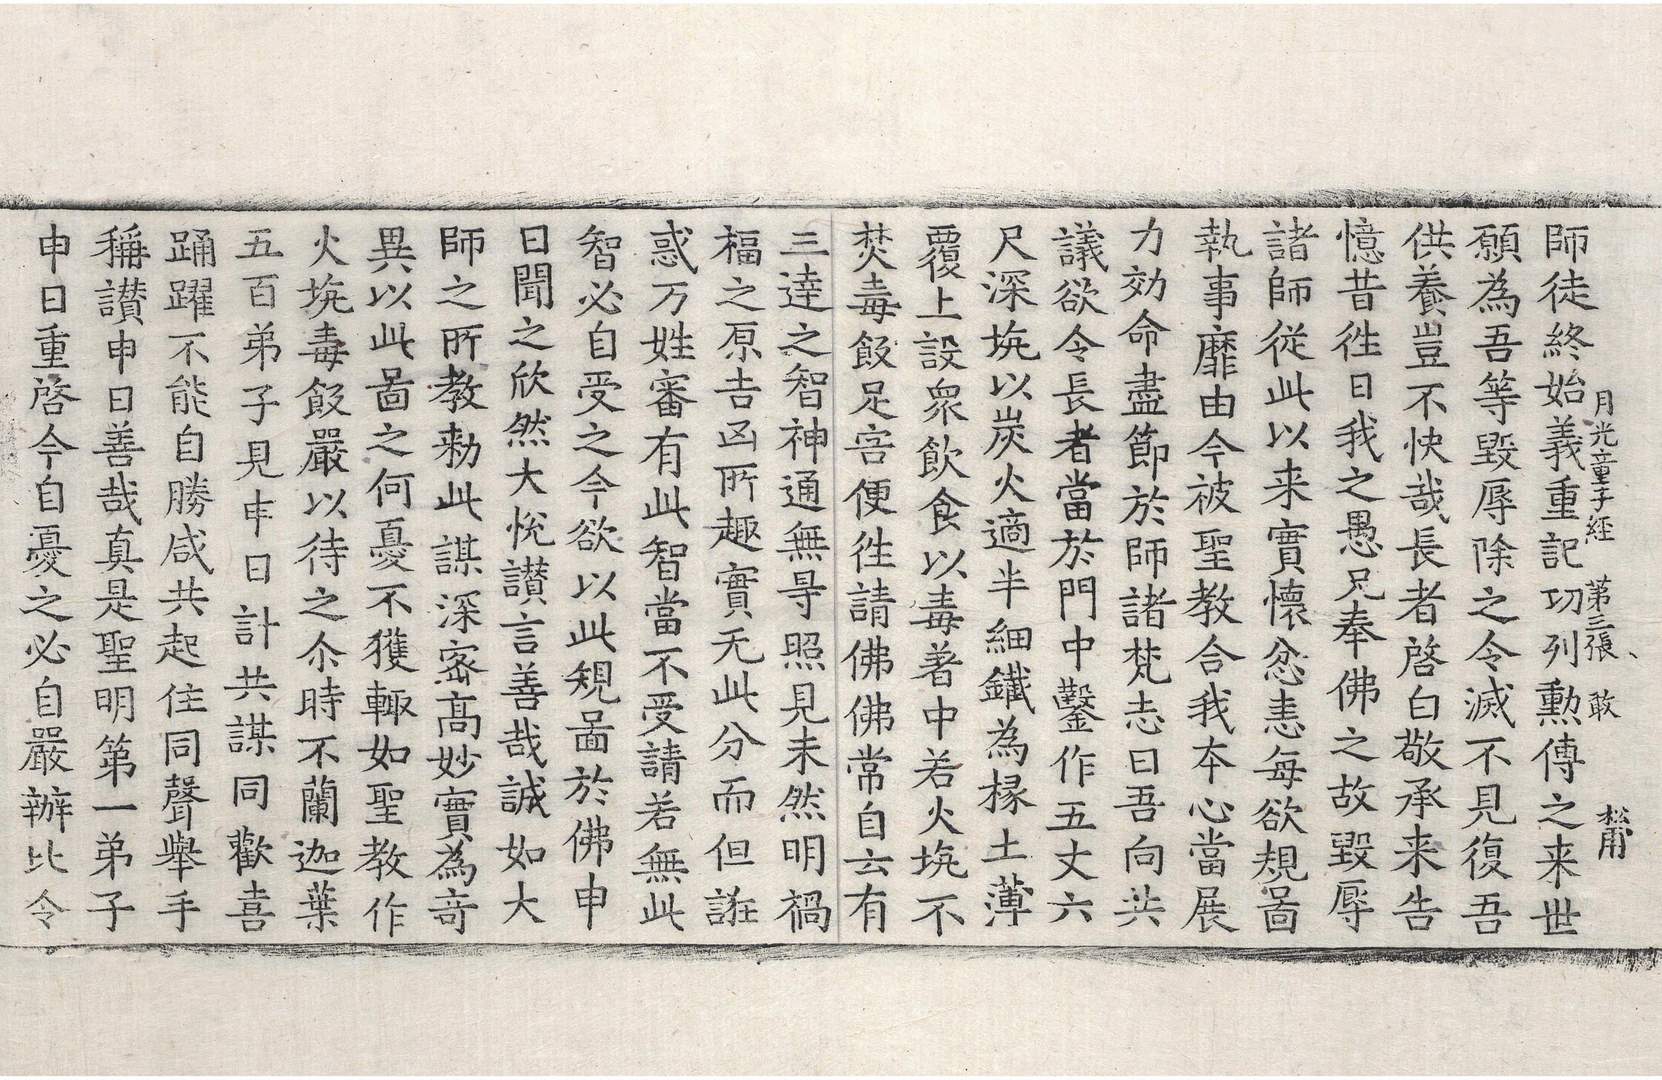 月光童子經 第三張 敢
師徒終始義重記功列勳傳之来世
願為吾等毀辱除之令滅不見復吾
供養豈不快哉長者啓白敬承来告
憶昔徃日我之愚兄奉佛之故毀辱
諸師從此以来實懷忿恚每欲規啚
執事靡由今被聖教合我本心當展
力効命盡節於師諸梵志曰吾向共
議欲令長者當於門中鑿作五丈六
尺深坑以炭火適半細鐵為椽土薄
覆上設衆飲食以毒著中若火坑不
焚毒飯足害便徃請佛佛常自云有
三達之智神通無㝵照見未然明禍
福之原吉凶所趣實无此分而但誑
惑万姓審有此智當不受請若無此
智必自受之今欲以此規啚於佛申
日聞之欣然大悅讃言善哉誠如大
師之所教勑此謀深密高妙實為奇
異以此啚之何憂不獲輙如聖教作
火坑毒飯嚴以待之尒時不蘭迦葉
五百弟子見申日計共謀同歡喜
踊躍不能自勝咸共起住同聲舉手
稱讃申日善哉真是聖明第一弟子
申日重啓今自憂之必自嚴辦比令